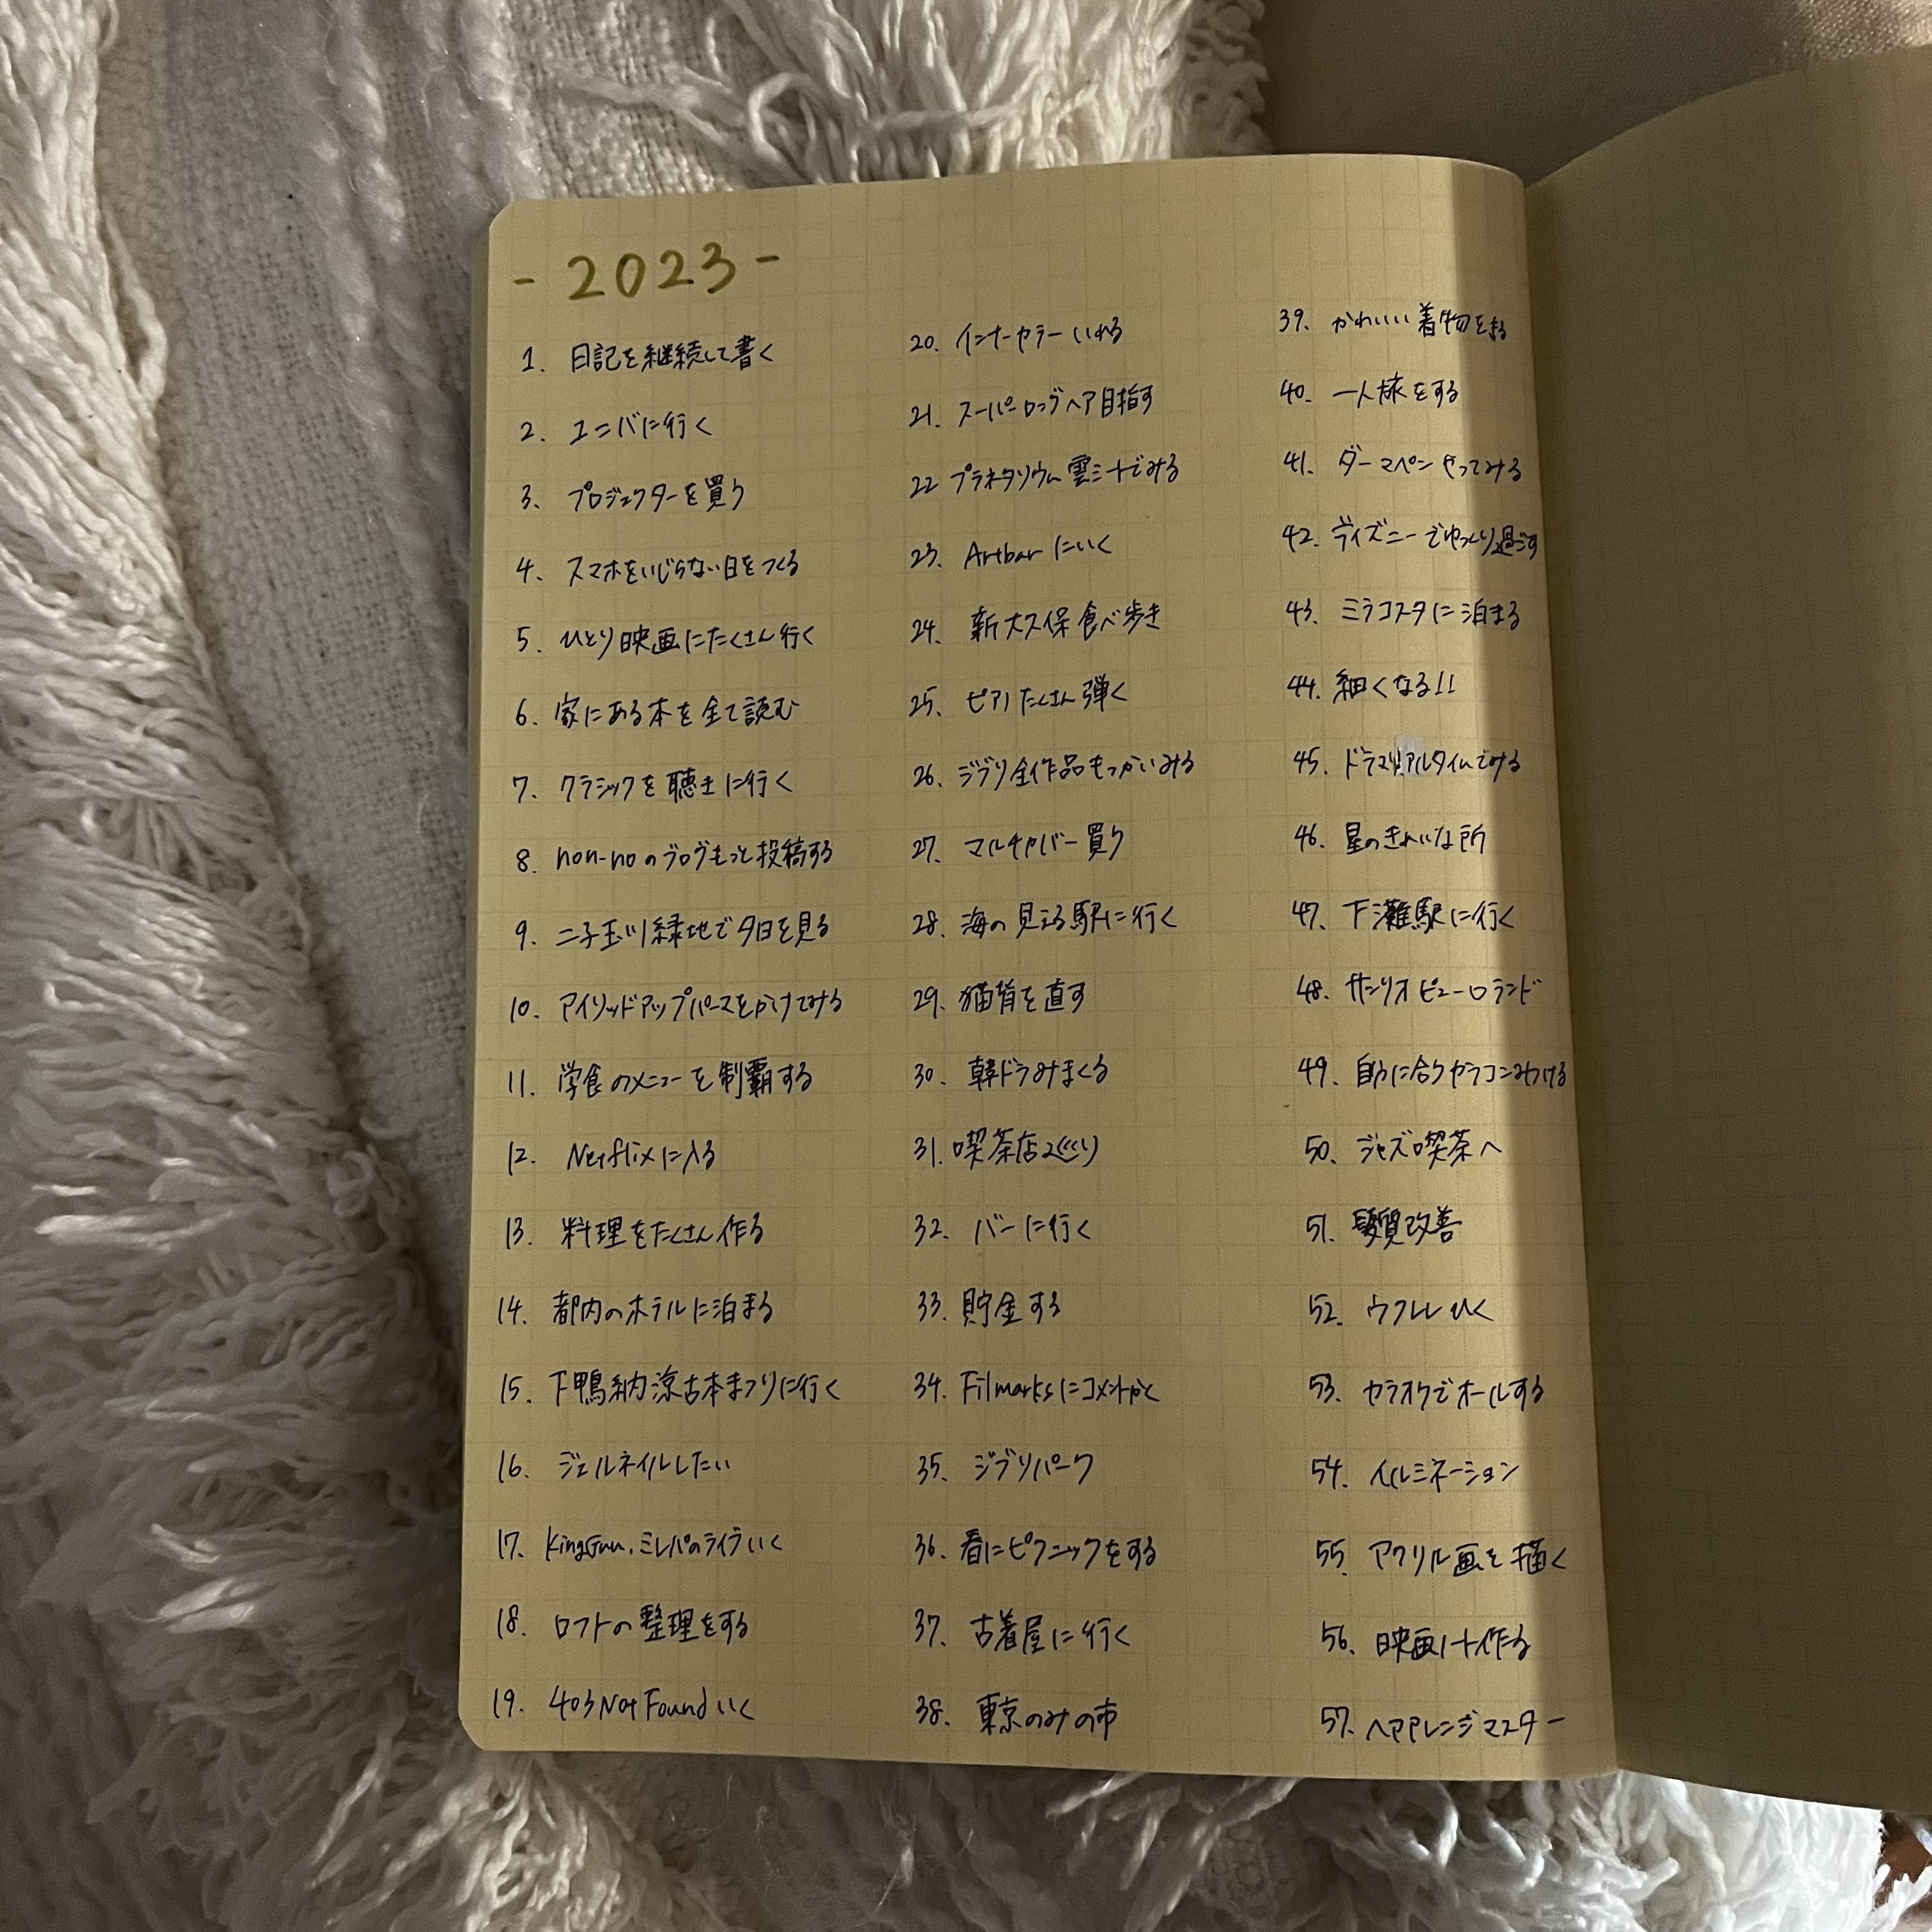 - 2023 -
1. 日記を継続して書く
2. ユニバに行く
3. プロジェクターを買う
4. スマホをいじらない日をつくる
5. ひとり映画にたくさん行く
6. 家にある本を全て読む
7. クラシックを聴きに行く
8. non-noのブログもっと投稿する
9. 二子玉川緑地で夕日を見る
10. アイリッドアップパーマをかけてみる
11. 学食のメニューを制覇する
12. Netflixに入る
13. 料理をたくさん作る
14. 都内のホテルに泊まる
15. 下鴨納涼古本まつりに行く
16. ジェルネイルしたい
17. KingGnu, ミレパのライブいく
18. ロフトの整理をする
19. 403 Not Found いく
20. インナーカラーいれる
21. スーパーロングヘア目指す
22 プラネタリウム雲シートでみる
23. Artbar にいく
24. 新大久保食べ歩き
25. ピアノたくさん弾く
26. ジブリ全作品もっかいみる
27. マルチカバー買う
28. 海の見える駅に行く
29. 猫背を直す
30. 韓ドラみまくる
31. 喫茶店巡り
32. バーに行く
33. 貯金する
34. Filmarksにコメントかく
35. ジブリパーク
36. 春にピクニックをする
37. 古着屋に行く
38. 東京のみの市
39. かわいい着物を着る
40. 一人旅をする
41. ダーマペンやってみる
42. ディズニーでゆっくり過ごす
43. ミラコスタに泊まる
44. 細くなる!!
45. ドラマリアルタイムでみる
46. 星のきれいな所
47. 下灘駅に行く
48. サンリオピューロランド
49. 自分に合うカラコンみつける
50. ジャズ喫茶へ
51. 髪質改善
52. ウクレレひく
53. カラオケでオールする
54. イルミネーション
55. アクリル画を描く
56. 映画ノート作る
57. ヘアアレンジマスター